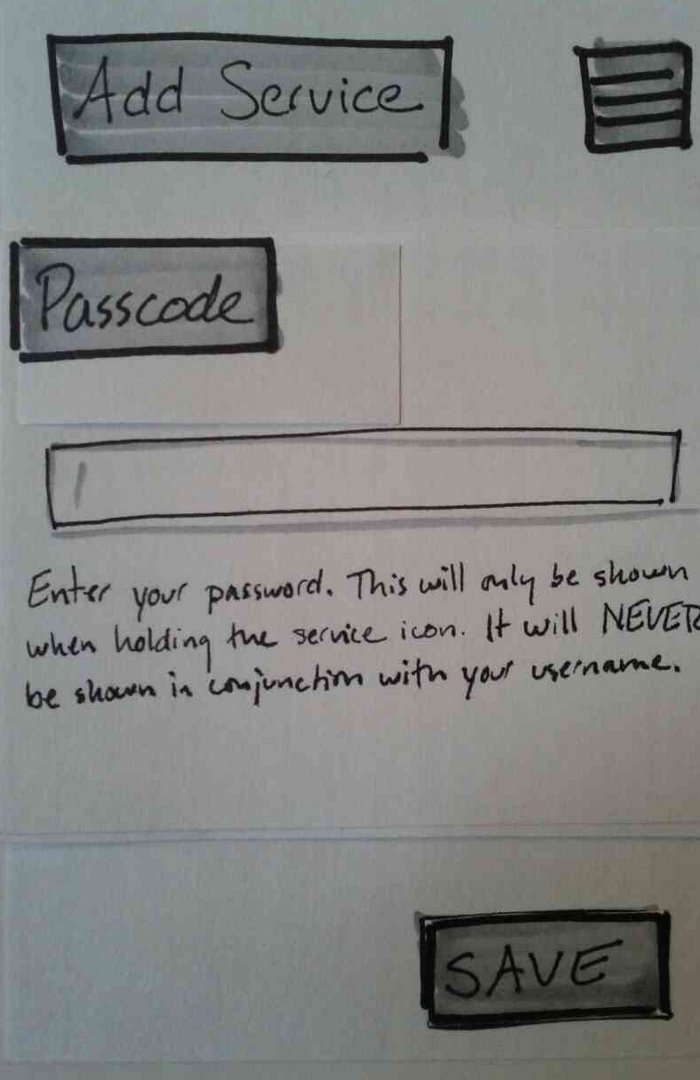 Add Service
Passcode
Enter your password. This will only be shown
when holding the service icon. It will NEVER
be shown in conjunction with your username.
SAVE